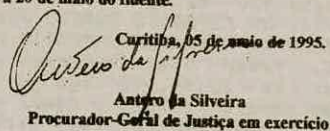 a 20 de maio do fluente.
Curitiba, 05 de maio de 1995.
Antero da Silveira
Procurador-Geral de Justiça em exercício